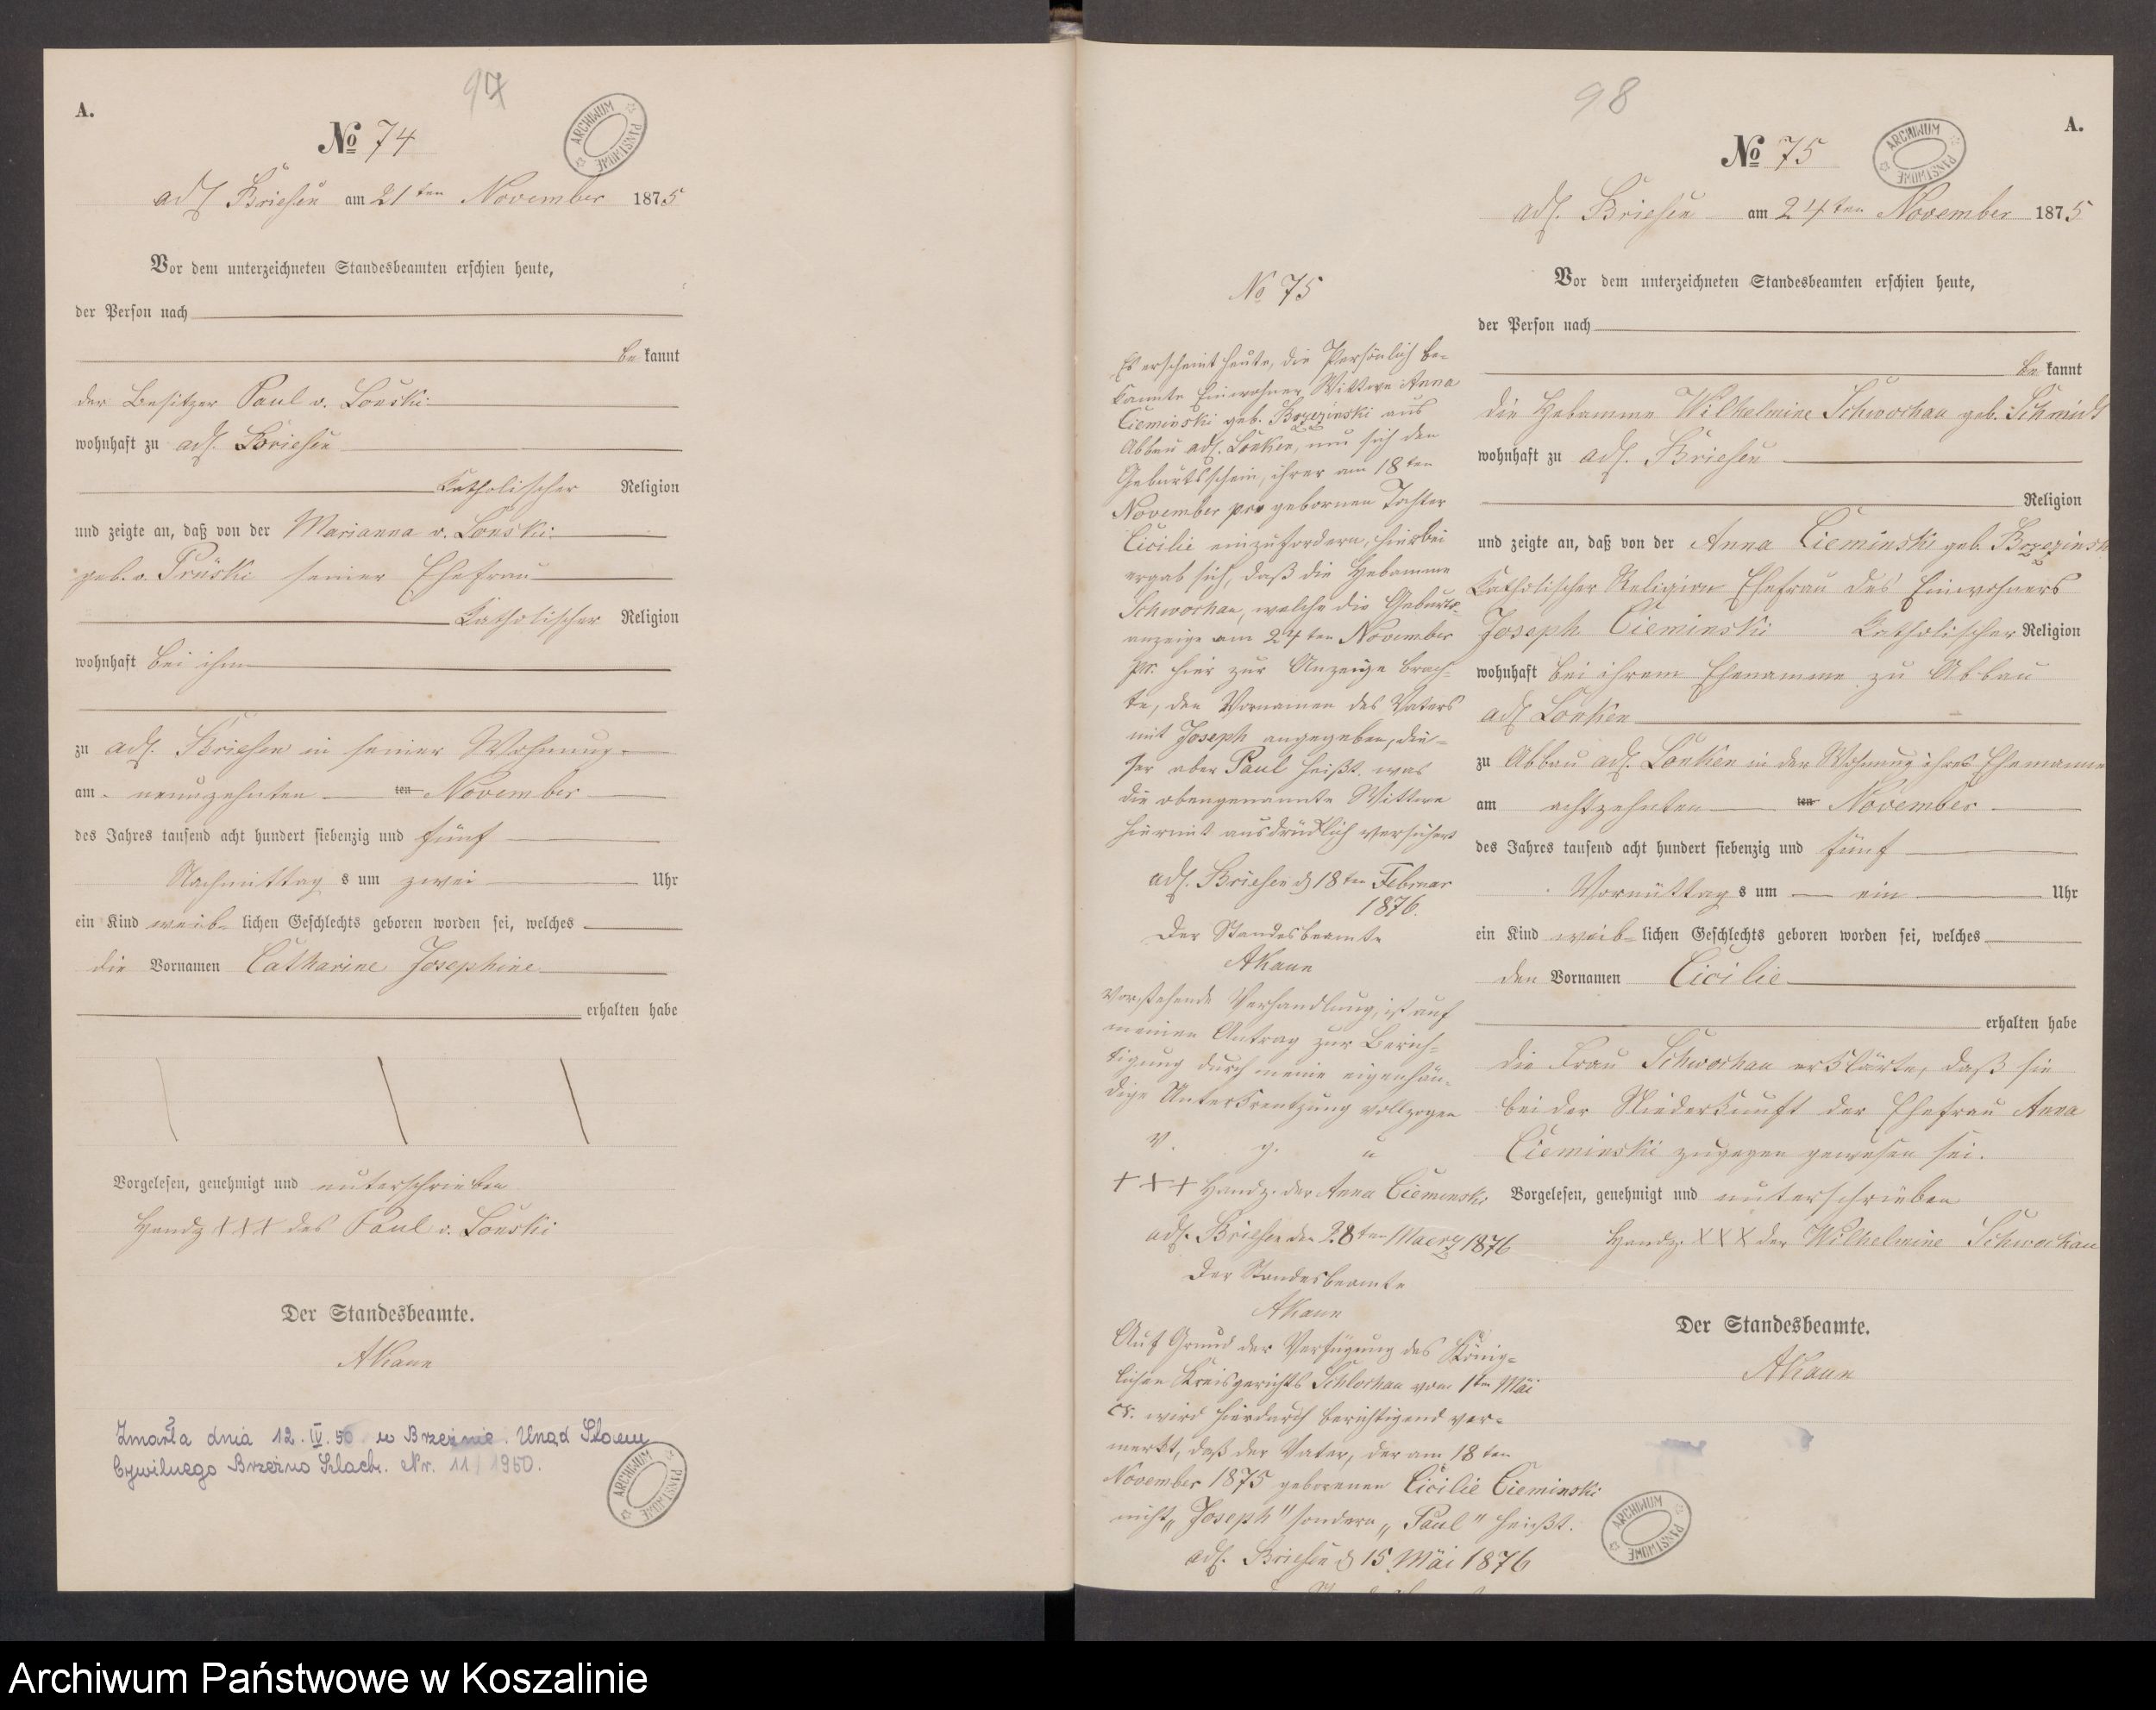 97
A.
No 74
adl Briesen am 21ten November 1875
Vor dem unterzeichneten Standesbeamten erschien heute,
der Person nach
be kannt
der Besitzer Paul v. Lonski
wohnhaft zu adl. Briesen
Katholischer Religion
und zeigte an, daß von der Marianna v. Lonski
geb. v. Prüski seiner Ehefrau
Katholischer Religion
wohnhaft bei ihm
zu adl. Briesen in seiner Wohnung
am neunzehnten ten November
des Jahres tausend acht hundert siebenzig und fünf
Nachmittag s um zwei Uhr
ein Kind weib- lichen Geschlechts geboren worden sei, welches
die Vornamen Catharine Josephine
erhalten habe
Vorgelesen, genehmigt und unterschrieben
Handz XXX des Paul v. Lonski
Der Standesbeamte.
AKaun
Zmarła dnia 12.IV.50 w Brzeźnie. Urząd Stanu
Cywilnego Brzeźno Szlach. Nr. 11/1950.
ARCHIWUM PAŃSTWOWE
98
A.
No 75
adl. Briesen am 24ten November 1875
Vor dem unterzeichneten Standesbeamten erschien heute,
der Person nach
be kannt
die Hebamme Wilhelmine Schwochau geb. Schmidt
wohnhaft zu adl. Briesen
Religion
und zeigte an, daß von der Anna Cieminski geb. Brzezinsk
Katholischer Religion Ehefrau des Einwohners
Joseph Cieminski Katholischer Religion
wohnhaft bei ihrem Ehemamme zu Abbau
adl Lonken
zu Abbau adl. Lonken in der Wohnung ihres Ehemanne
am achtzehnten ten November
des Jahres tausend acht hundert siebenzig und fünf
Vormittag s um ein Uhr
ein Kind weib- lichen Geschlechts geboren worden sei, welches
den Vornamen Cicilie
erhalten habe
die Frau Schwochau erklärte, daß sie
bei der Niederkunft der Ehefrau Anna
Cieminski zugegen gewesen sei.
Vorgelesen, genehmigt und unterschrieben
Handz. XXX der Wilhelmine Schwochau
Der Standesbeamte.
AKaun
No 75
Es erscheint heute, die Persönlich be-
kannte Einwohner Wittwe Anna
Cieminski geb. Brzezinski aus
Abbau adl. Lonken, um sich den
Geburtsschein, ihrer am 18ten
November pr. gebornen Tochter
Cicilie einzufordern, hierbei
ergab sich, daß die Hebamme
Schwochau, welche die Geburts-
anzeige am 24ten November
pr. hier zur Anzeige brach-
te, den Vornamen des Vaters
mit Joseph angegeben, die-
ser aber Paul heißt, was
die obengenannte Wittwe
hiermit ausdrücklich versichert
adl. Briesen d 18ten Februar
1876.
Der Standesbeamte
AKaun
Vorstehende Verhandlung, ist auf
meinen Antrag zur Berich-
tigung durch meine eigenhän-
dige Unterkreutzung vollzogen
v. g. u
+++ Handz. der Anna Cieminski
adl. Briesen den 28ten Maerz 1876
Der Standesbeamte
AKaun
Auf Grund der Verfügung des König-
lichen Kreisgerichts Schlochau vom 1ten Mäi
cr. wird hierdurch berichtigend ver-
merkt, daß der Vater, der am 18ten
November 1875 geborenen Cicilie Cieminski
nicht „Joseph" sondern „Paul" heißt.
adl. Briesen d 15. Mäi 1876
ARCHIWUM PAŃSTWOWE
Archiwum Państwowe w Koszalinie